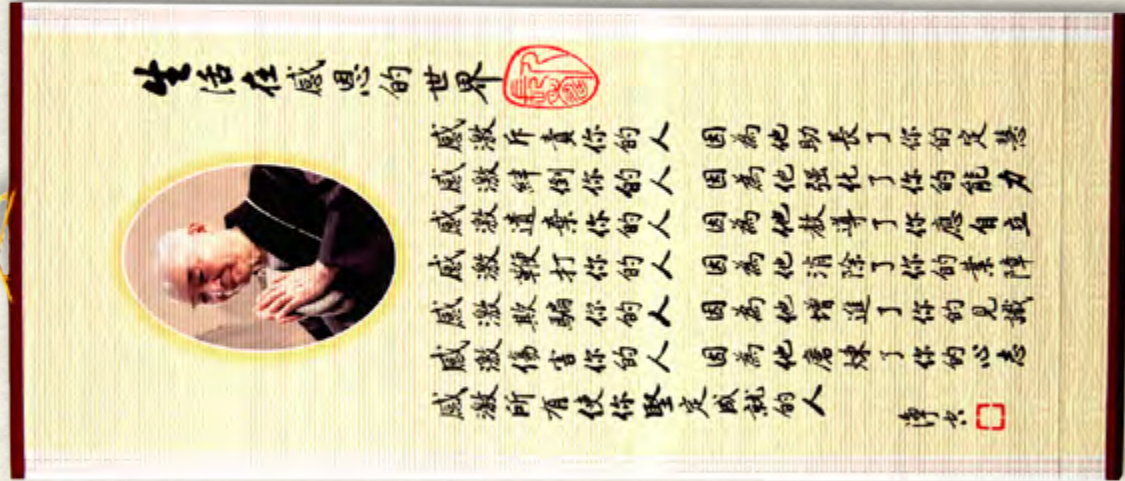 生活在感恩的世界
感激斥責你的人 因為他助長了你的定慧
感激絆倒你的人 因為他强化了你的能力
感激遺棄你的人 因為他教導了你應自立
感激鞭打你的人 因為他消除了你的業障
感激欺騙你的人 因為他增進了你的見識
感激傷害你的人 因為他磨煉了你的心志
感激所有使你堅定成就的人
淨空